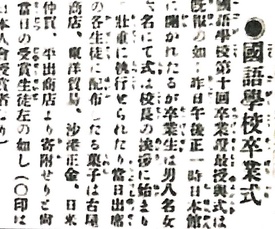 ●國語學校卒業式
國語學校第十回卒業證書授與式は
既報の如く昨日午後正一時日本館
に開かれたるが卒業生は男八名女
名にて式は校長の挨拶に始まり
壯重に執行せられたり當日出席
の各生徒に配布したる菓子は古屋
商店、東洋貿易、沙港正金、日米
仲買、平出商店より寄附せりと尚
當日の受賞生徒左の如し(〇印は
本人會受賞者